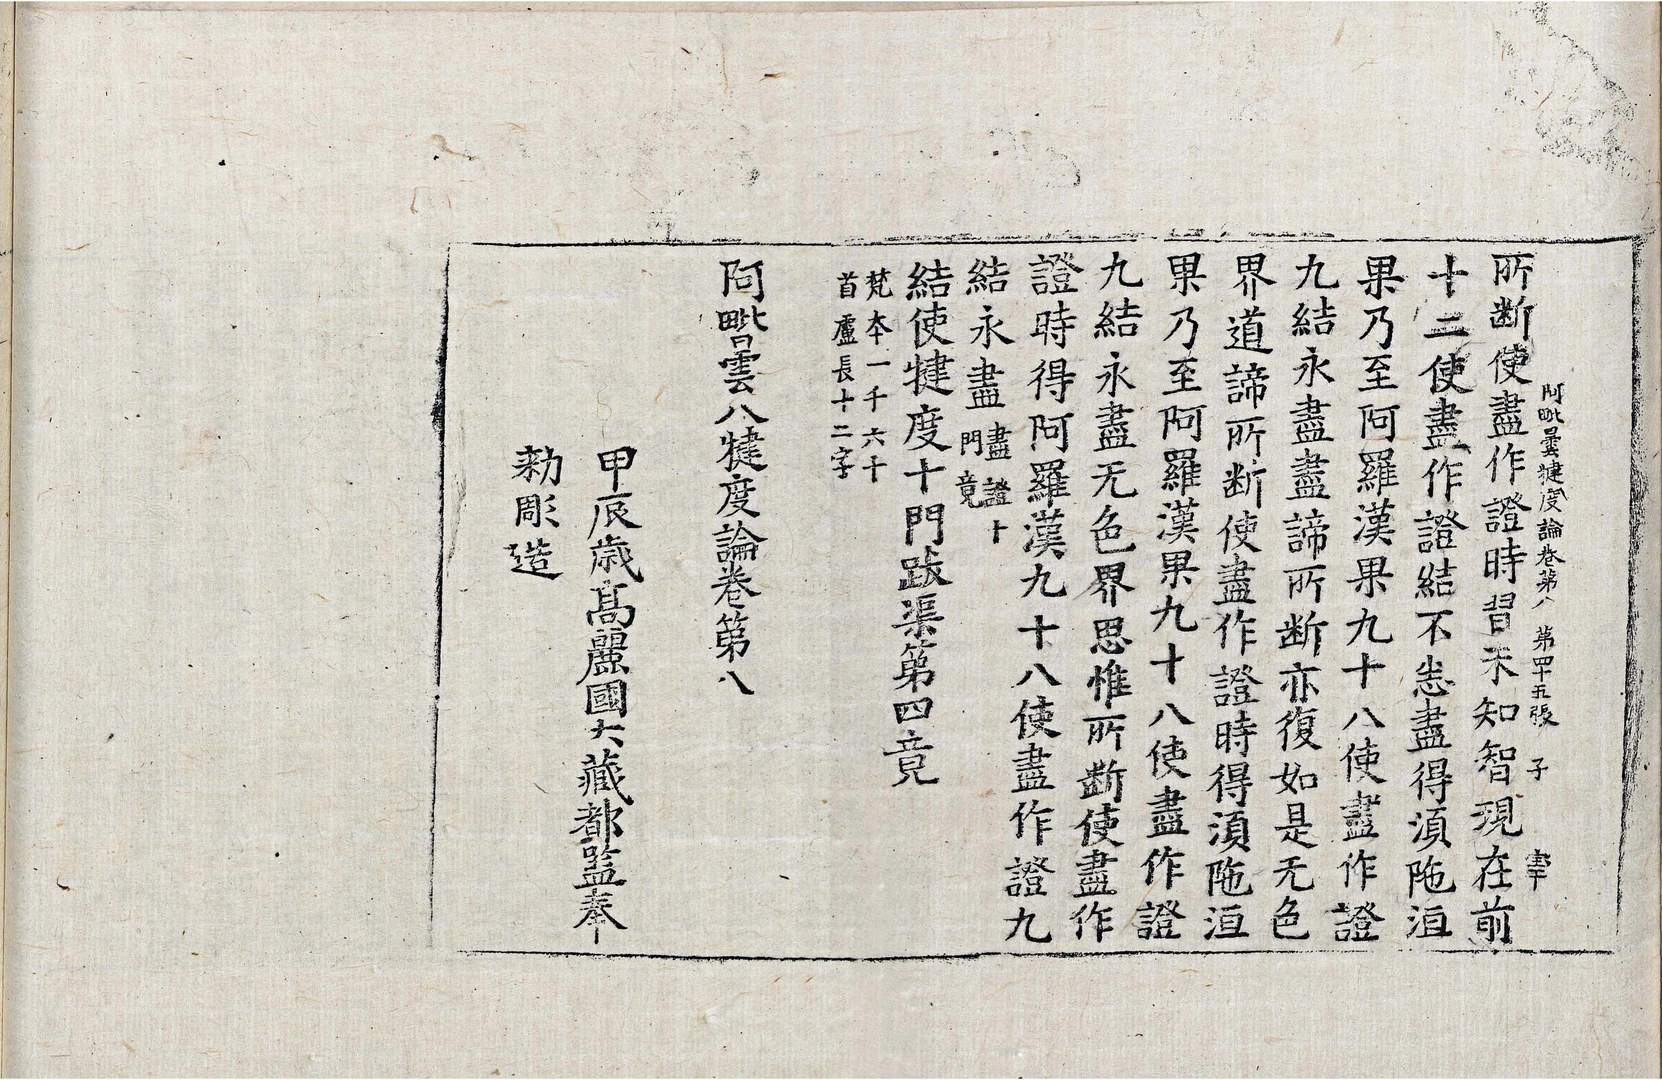 阿毗曇犍度論卷第八　第四十五張　子
所断使盡作證時習未知智現在前
十二使盡作證結不恙盡得湏陁洹
果乃至阿羅漢果九十八使盡作證
九結永盡盡諦所断亦復如是无色
界道諦所断使盡作證時得湏陁洹
果乃至阿羅漢果九十八使盡作證
九結永盡无色界思惟所断使盡作
證時得阿羅漢九十八使盡作證九
結永盡盡證十門竟
結使犍度十門跋渠第四竟
梵夲一千六十
首盧長十二字
阿毗曇八犍度論卷第八
甲辰歳髙麗國大藏都監奉
勑彫造